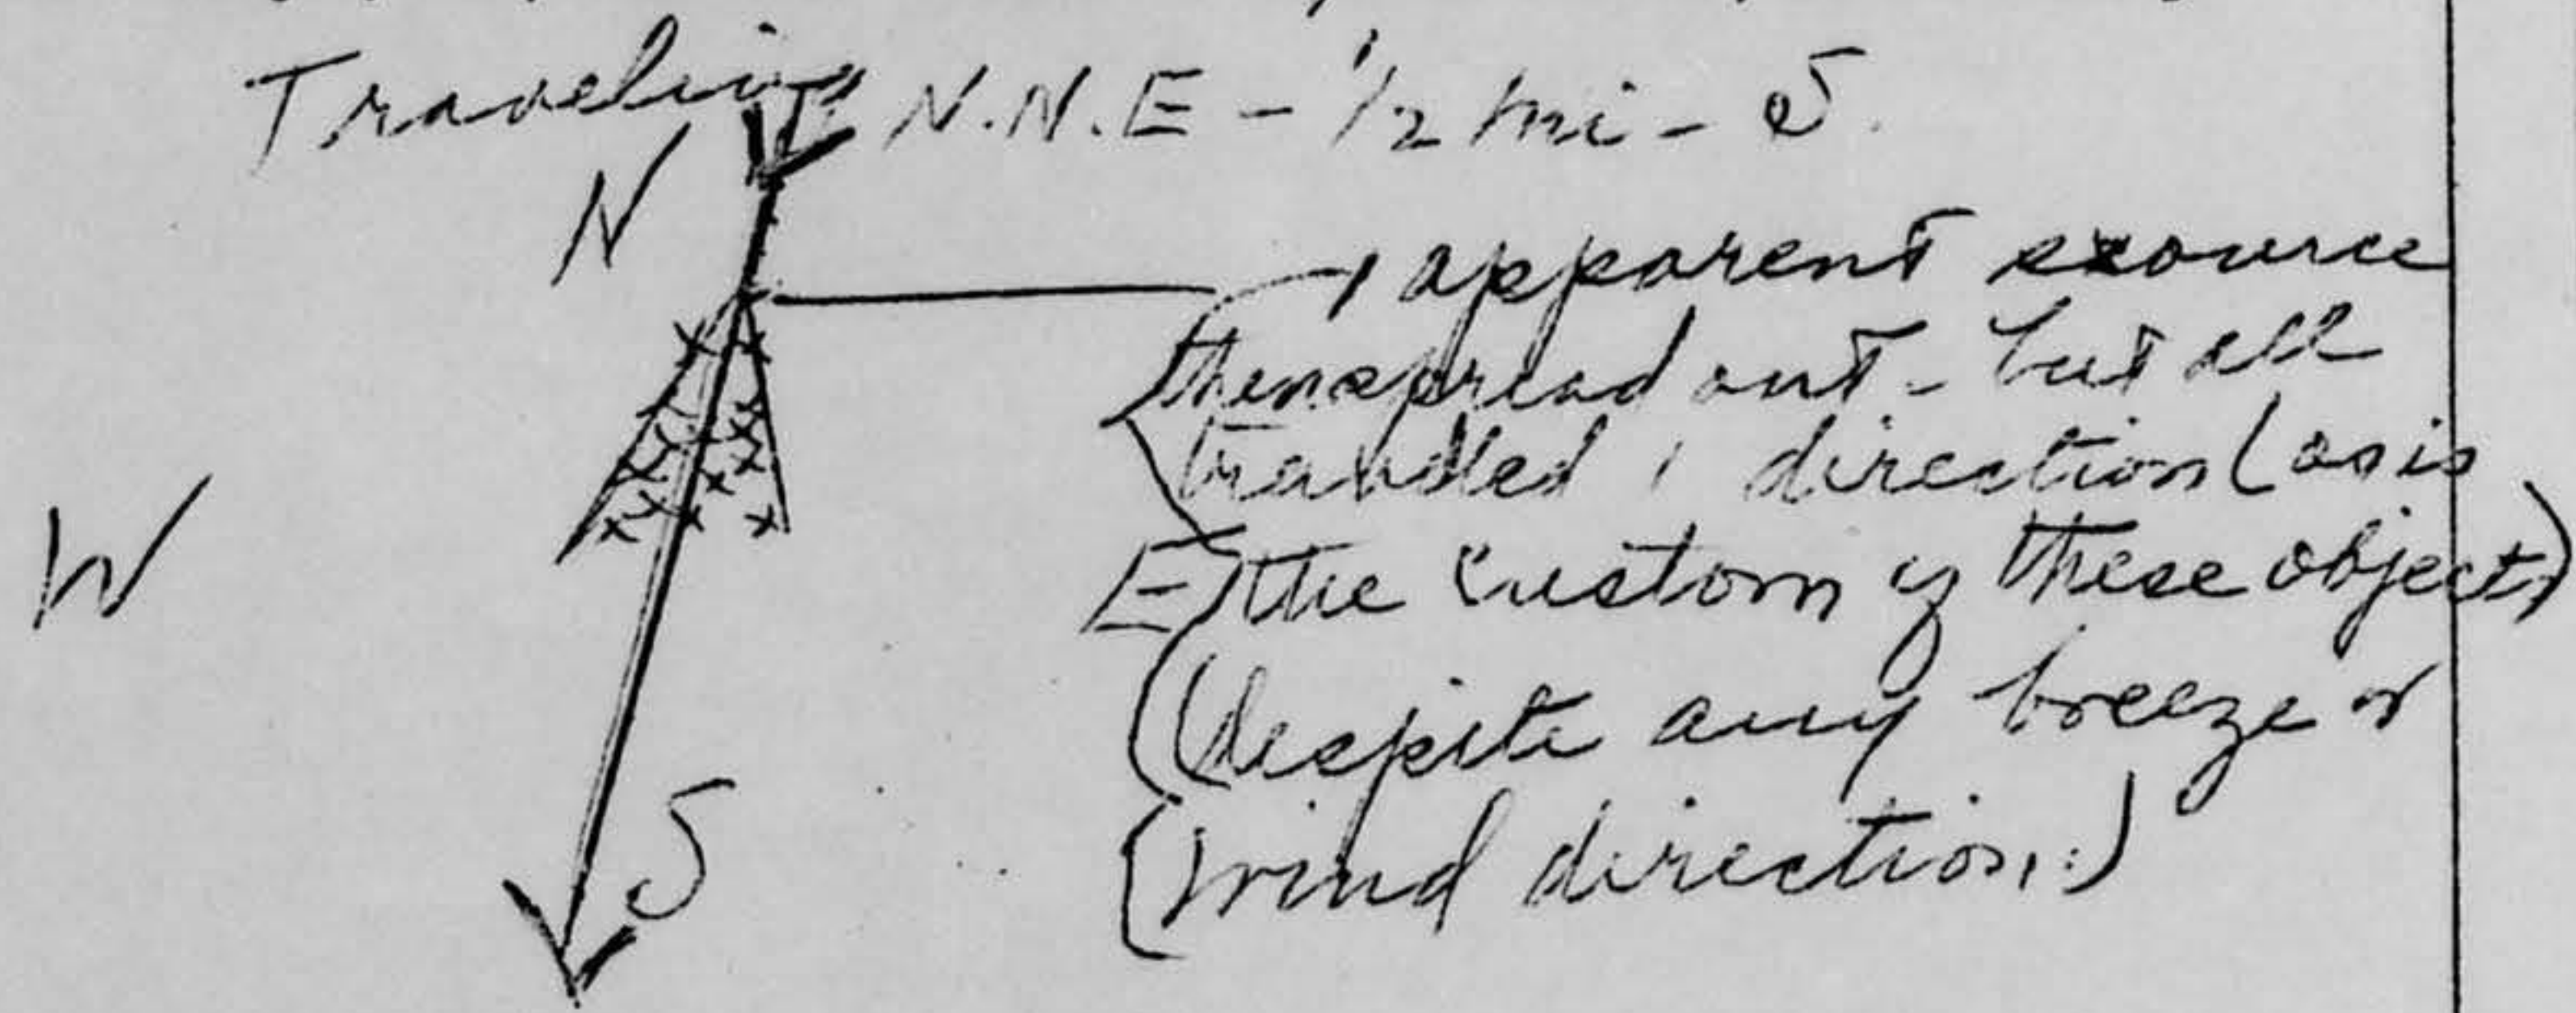 Traveling N.N.E - 1/2 mi - S.
N
1 apparent source
then spread out - but all
travelled 1 direction (as is
W
E
the custom of these objects)
(despite any breeze or
wind direction.)
S